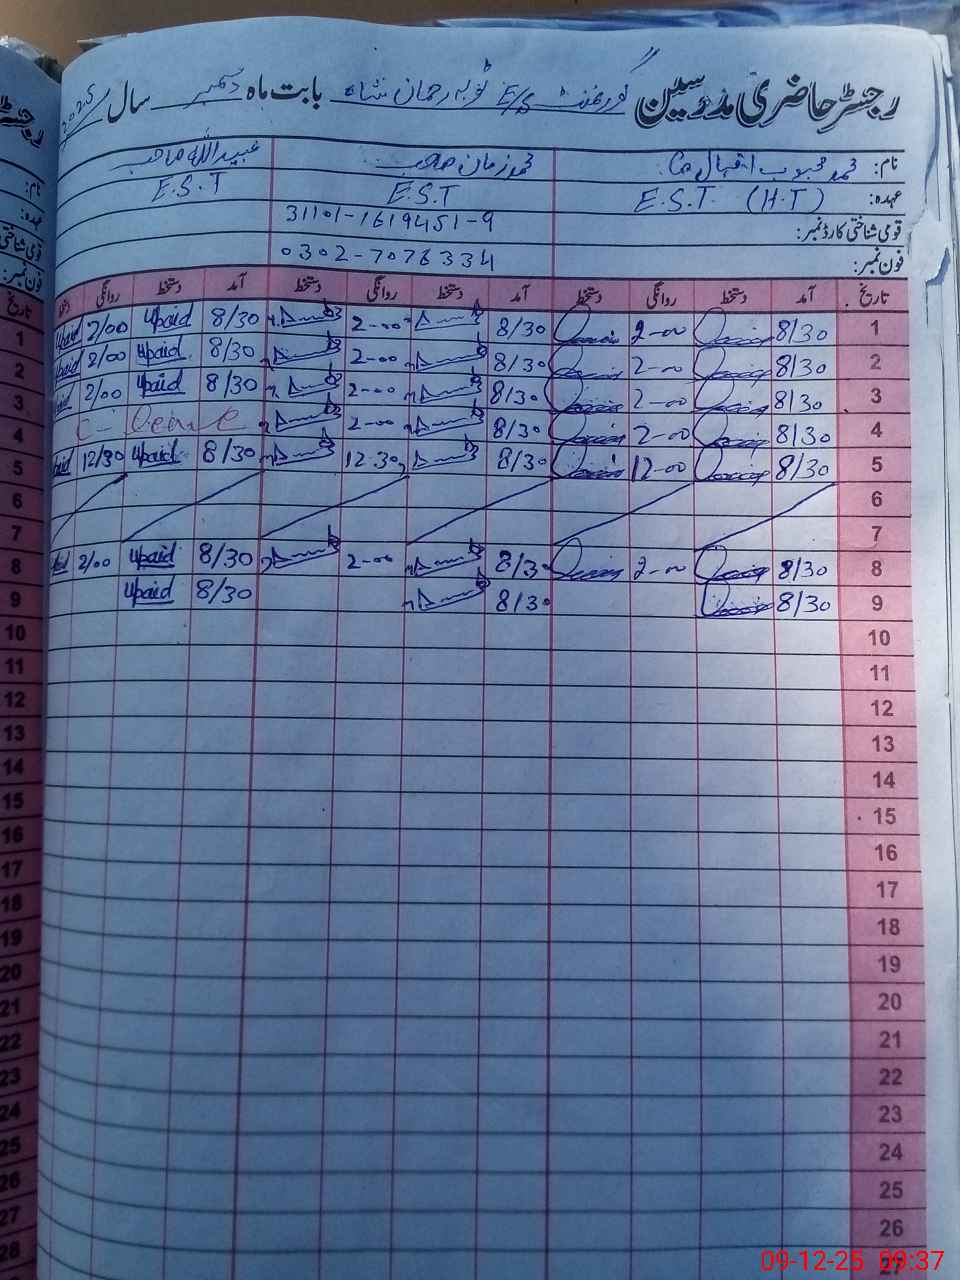 رجسٹر حاضری مدرسین گورنمنٹ E/S ٹوبہ رحمان شاہ بابت ماہ دسمبر سال 2025
نام: محمد محبوب اقبال صاحب محمد زمان صاحب عبیداللہ صاحب
عہدہ: E.S.T. (H.T) E.S.T E.S.T
قومی شناختی کارڈ نمبر: 31101-1619451-9
فون نمبر: 0302-7076334
تاریخ آمد دستخط روانگی دستخط آمد دستخط روانگی دستخط آمد دستخط روانگی
1 8/30 2-00 8/30 2-00 8/30 Upaid 2/00
2 8/30 2-00 8/30 2-00 8/30 Upaid 2/00
3 8/30 2-00 8/30 2-00 8/30 Upaid 2/00
4 8/30 2-00 8/30 2-00 C-Leave
5 8/30 12-00 8/30 12-30 8/30 Upaid 12/30
6
7
8 8/30 2-00 8/30 2-00 8/30 Upaid 2/00
9 8/30 8/30 8/30 Upaid
10
11
12
13
14
15
16
17
18
19
20
21
22
23
24
25
26
27
09-12-25 09:37